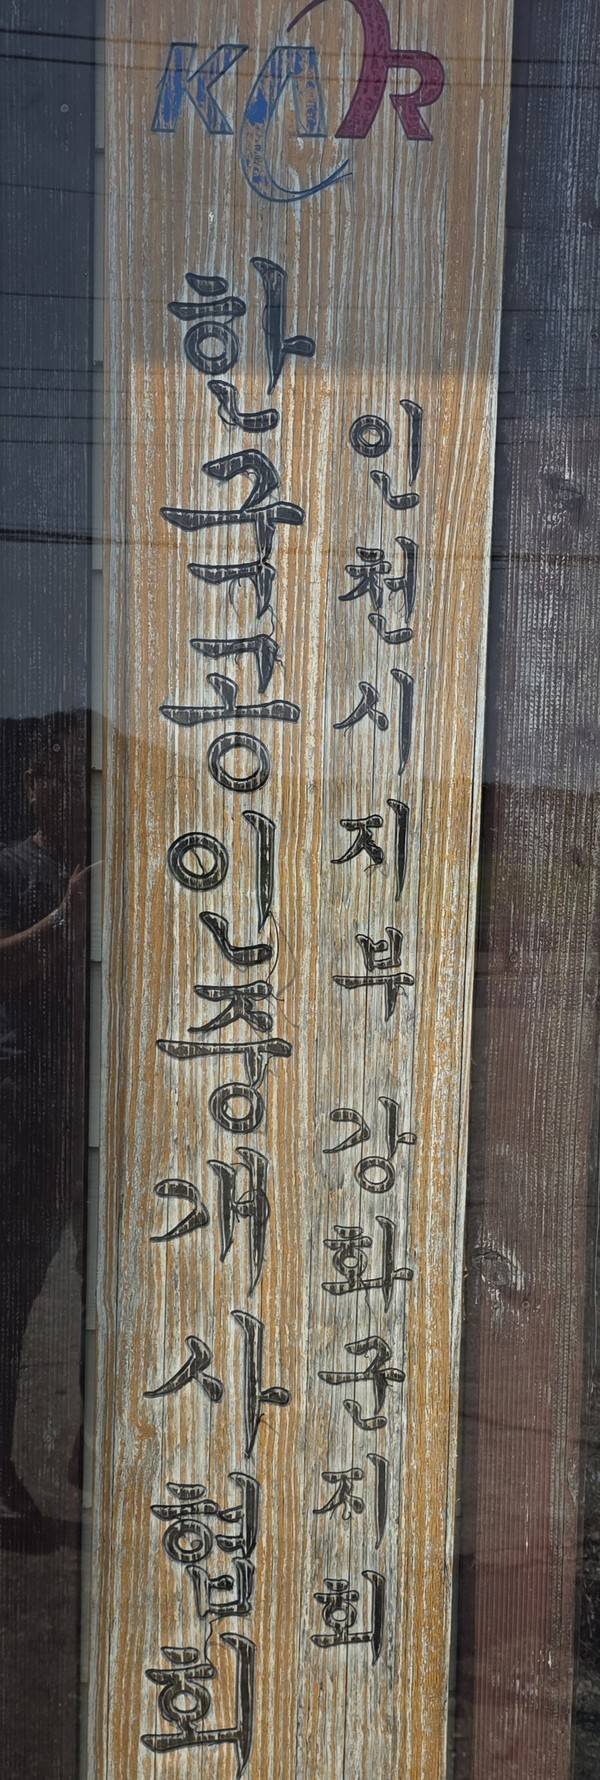 KAR
한국공인중개사협회
인천시지부 강화군지회